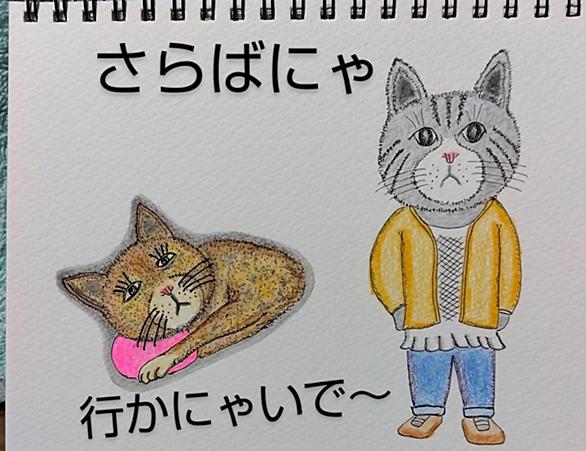 さらばにゃ
行かにゃいで〜